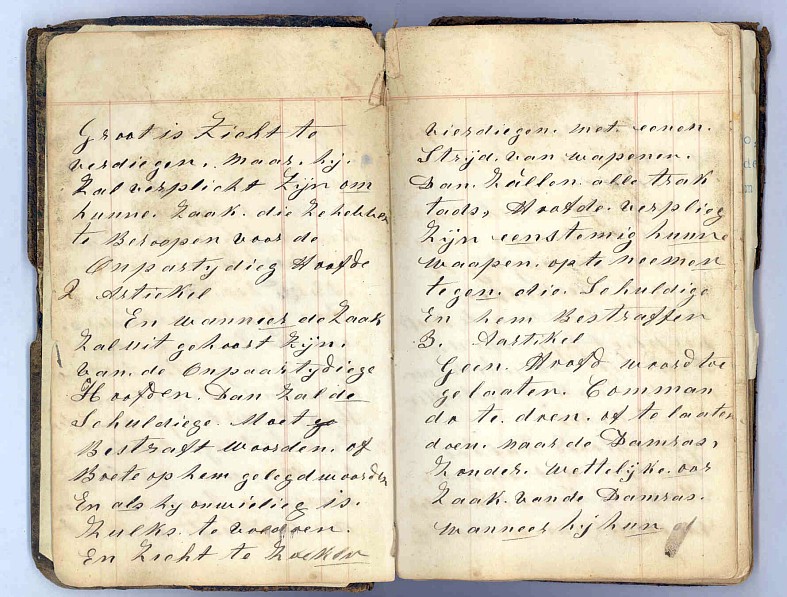 Groot is Zicht te
verdiegen. maar. hij.
Zal verplicht Zijn om
hunne. Zaak. die Zehebben
te Beroopen voor de
Onpartydieg Hoofde
2 Artickel
En wanneer de Zaak
Zal uit gehoort Zijn.
van. de Onpaartydiege
Hoofden. Dan Zal de
Schuldiege. Moet
Bestraft woorden. of
Boete op hem gelegd woorden
En als hy onwieliig is.
Zulks. te voldoen.
En Zicht te Zoeken
vierdiegen. met. eenen.
Strijd. van wapenen.
Dan. Zullen. alle trak
tads, Hoofde. verplieg
Zijn eenstemig hunne
waapen. op te neemen
tegen. die. Schuldige
En hem Bestraffen
3. Aartikel
Geen. Hoofd woord toe
gelaaten. Comman
do te. doen. of te laaten
doen. naar de Damras,
Zonder. wettelijke. oor
Zaak. vande Damras.
wanneer hij hun of